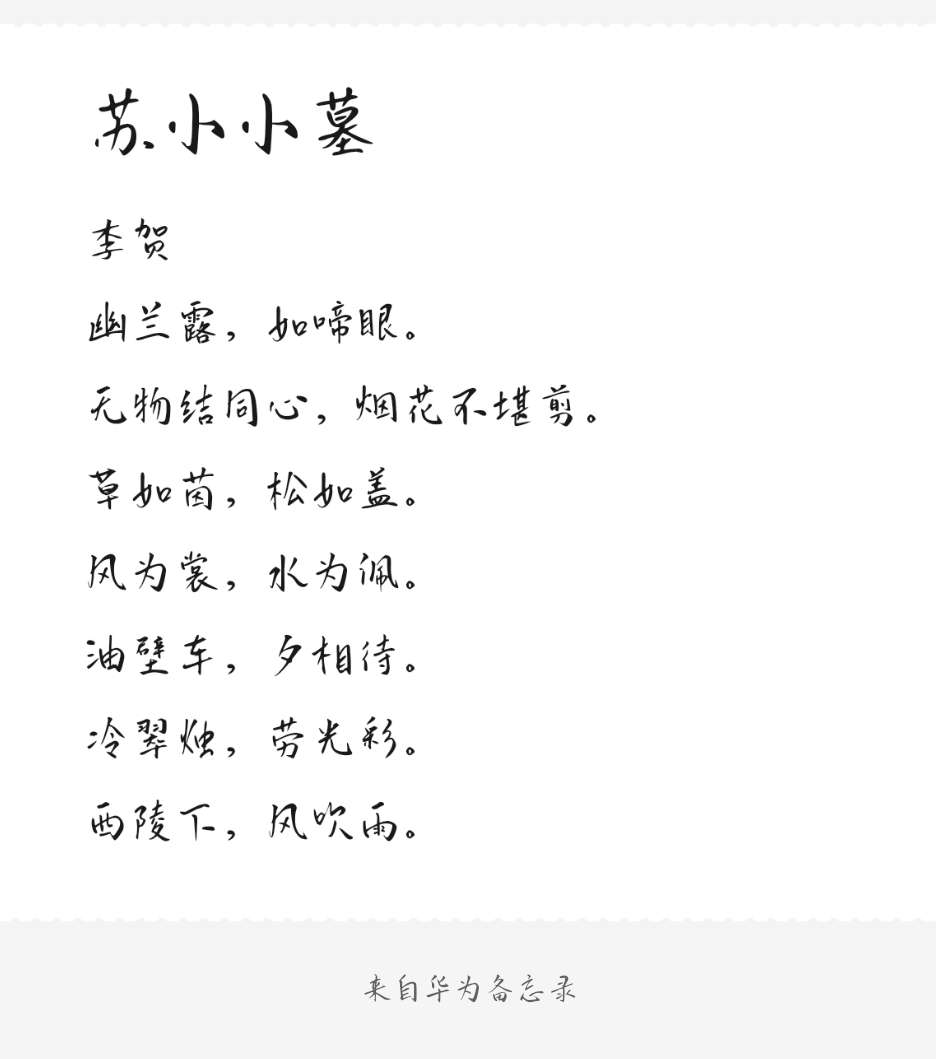 苏小小墓
李贺
幽兰露，如啼眼。
无物结同心，烟花不堪剪。
草如茵，松如盖。
风为裳，水为佩。
油壁车，夕相待。
冷翠烛，劳光彩。
西陵下，风吹雨。
来自华为备忘录